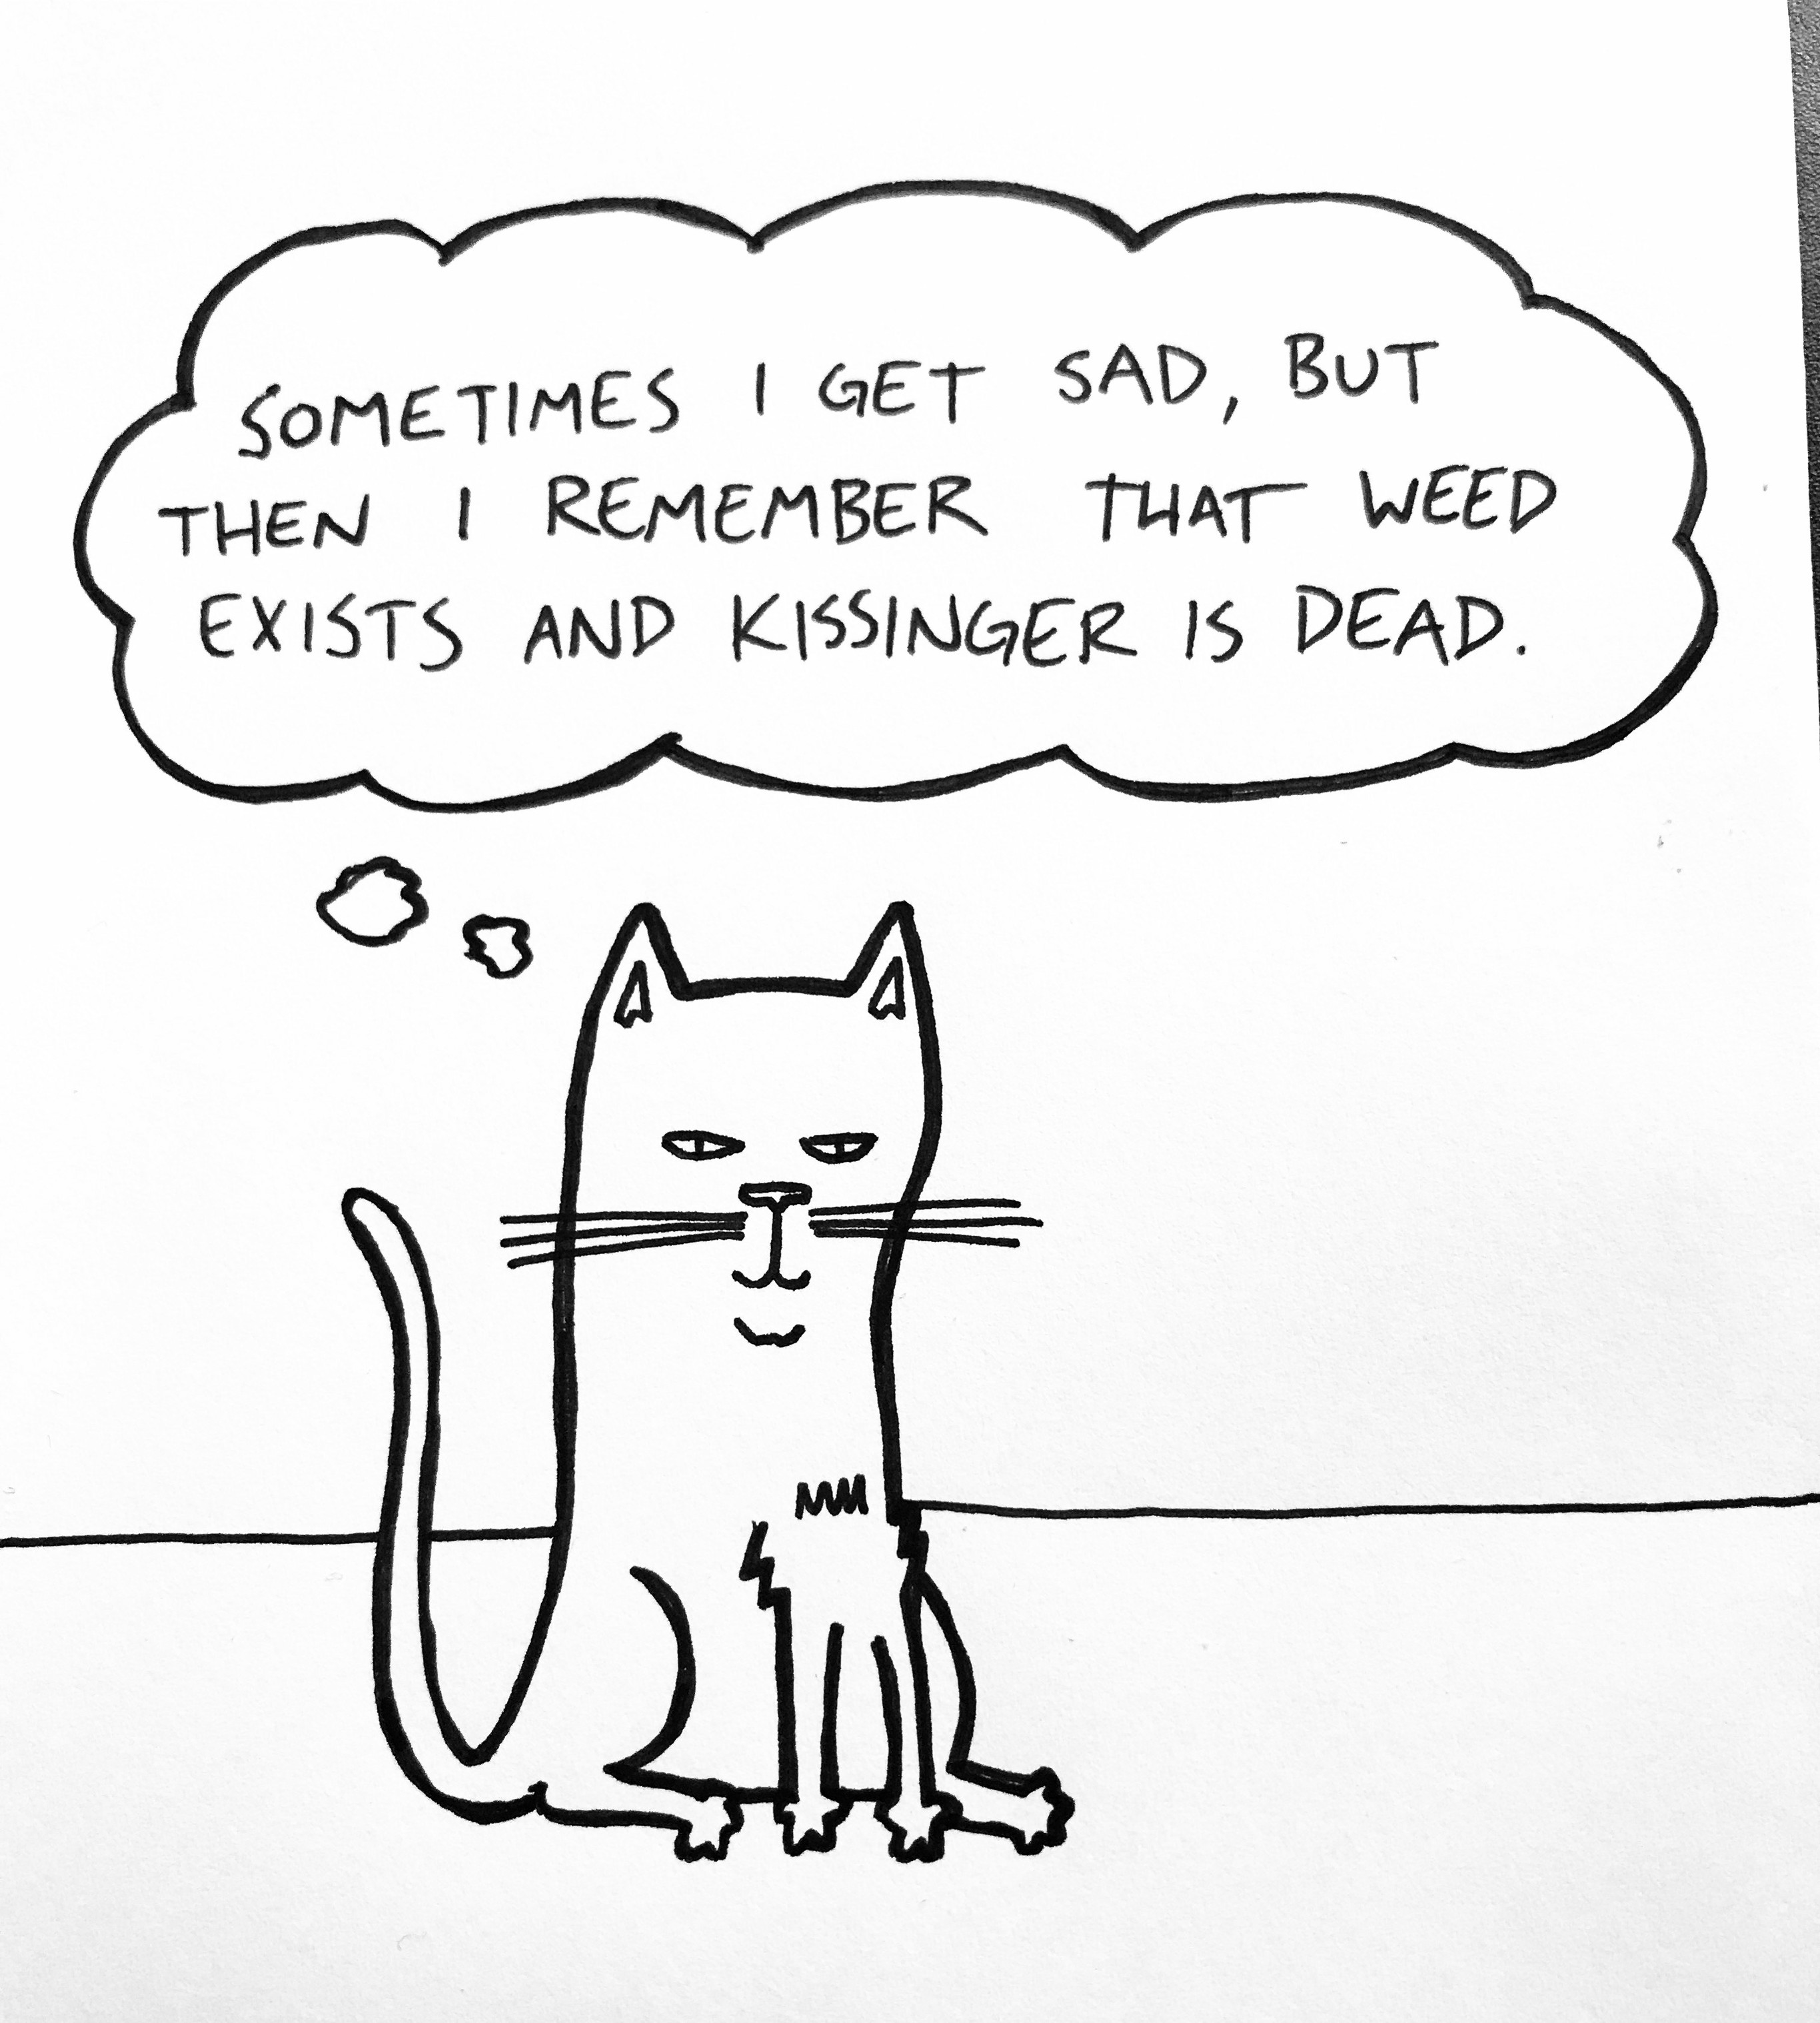 SOMETIMES I GET SAD, BUT
THEN I REMEMBER THAT WEED
EXISTS AND KISSINGER IS DEAD.